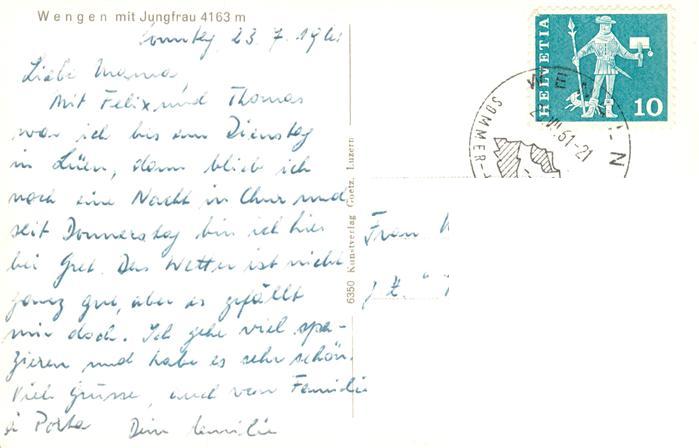 Wengen mit Jungfrau 4163 m
Sonntag, 23. 7. 1961
Liebe Mama,
Mit Felix und Thomas
war ich bis am Dienstag
in Lüen, dann blieb ich
noch eine Nacht in Chur und
seit Donnerstag bin ich hier
bei Gret. Das Wetter ist nicht
ganz gut, aber es gefällt
mir doch. Ich gehe viel spa-
zieren und habe es sehr schön.
Viele Grüsse, auch von Familie
à Porta Dein
6350 Kunstverlag Goetz, Luzern
Frau
HELVETIA
10
WENGEN
VII.61-21
SOMMER-